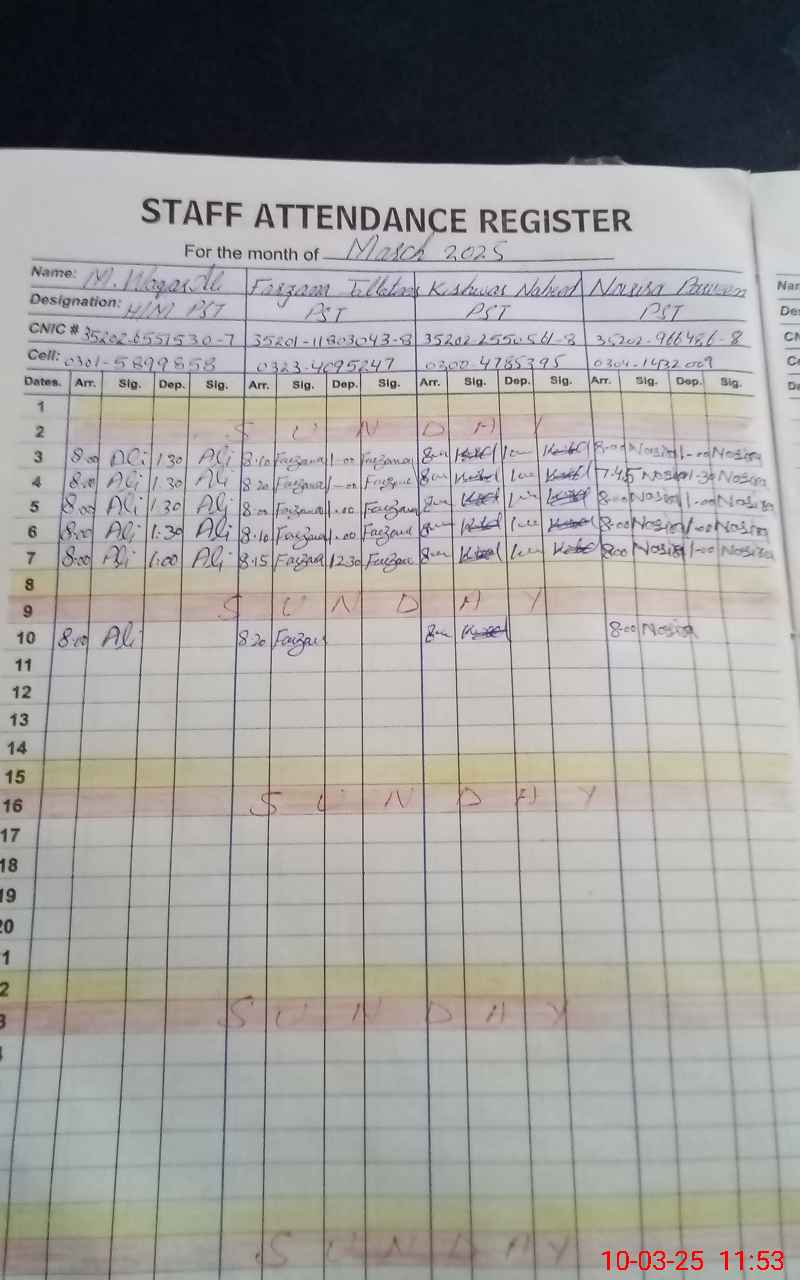 STAFF ATTENDANCE REGISTER
For the month of March 2025
Name: M. Waqas Ali Farzana Kishwar Naheed Nasira Parveen
Designation: H/M PST PST PST PST
CNIC # 35202-6551530-7 35201-11803043-8 35202-2550561-8 35202-966486-8
Cell: 0301-5899858 0323-4095247 0300-4785395 0304-1432009
Dates. Arr. Sig. Dep. Sig. Arr. Sig. Dep. Sig. Arr. Sig. Dep. Sig. Arr. Sig. Dep. Sig.
1
2 SUNDAY
3 8.00 Ali 1:30 Ali 8.10 Farzana 1-00 Farzana 8 1 8-00 Nasira 1-00 Nasira
4 8.00 Ali 1.30 Ali 8.20 Farzana 1-00 Farzana 8 1 7.45 Nasira 1-30 Nasira
5 8.00 Ali 1:30 Ali 8.00 Farzana 1.00 Farzana 8 1 8:00 Nasira 1.00 Nasira
6 8:00 Ali 1:30 Ali 8.10 Farzana 1.00 Farzana 8 1 8:00 Nasira 1.00 Nasira
7 8:00 Ali 1:00 Ali 8.15 Farzana 12.30 Farzana 8 1 8:00 Nasira 1-00 Nasira
8
9 SUNDAY
10 8.00 Ali 8.20 Farzana 8 8.00 Nasira
11
12
13
14
15
16 SUNDAY
17
18
19
20
1
2
3 SUNDAY
SUNDAY
10-03-25 11:53